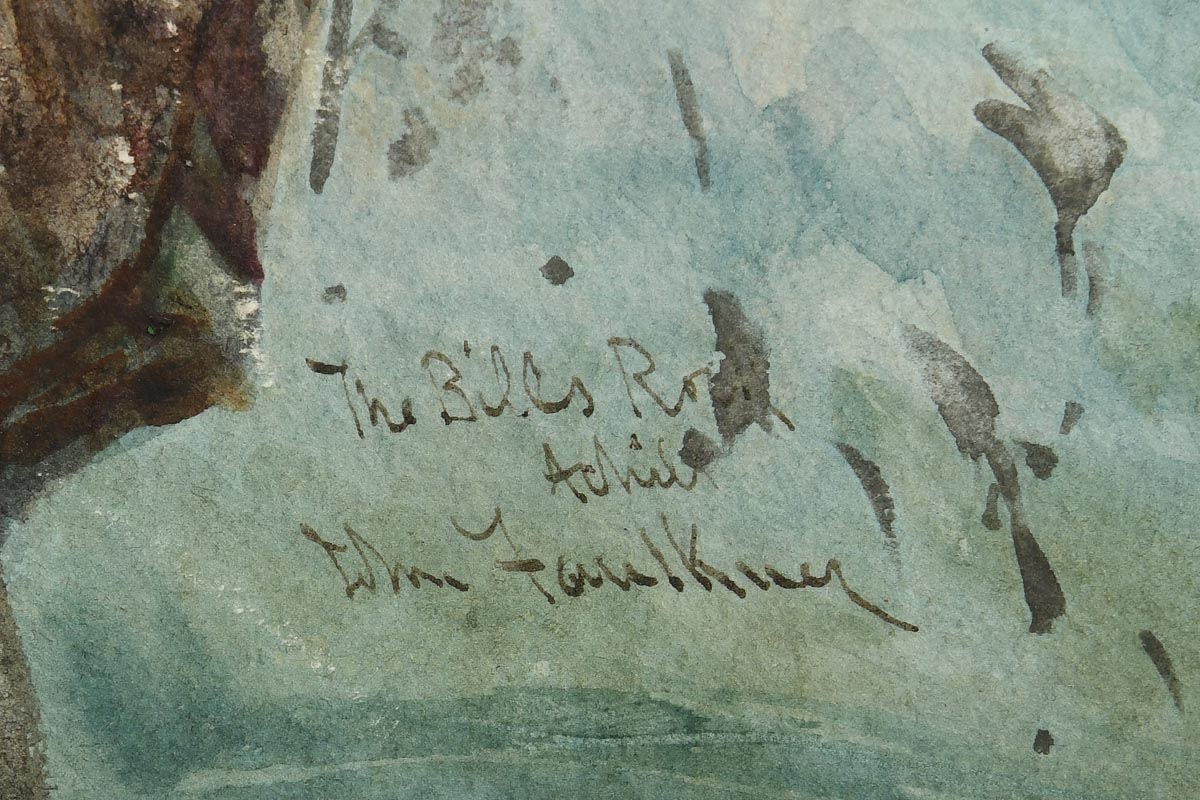 The Bills Rock
Achill
John Faulkner